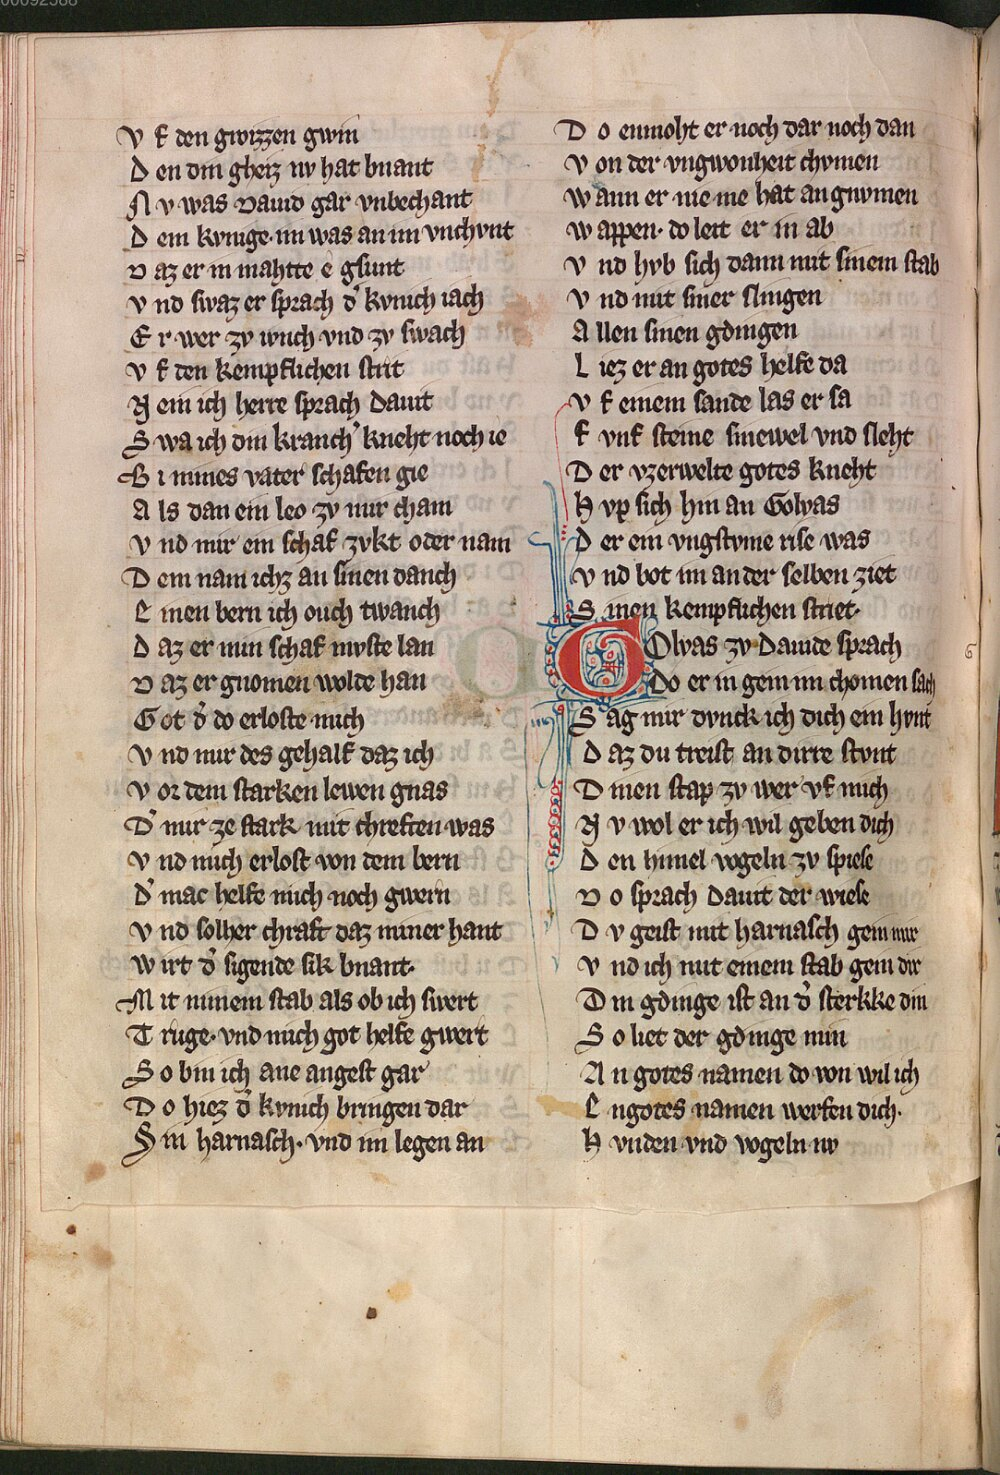 00092588
V f den gwizzen gwin
D en din gheiz uv hat bnant
N v was david gar vnbechant
D em kynige im was an im vnchvnt
D az er in mahtte e gsunt
V nd swaz er sprach d' kynich iach
E r wer zv iunch vnd zv swach
V f den kempflichen strit
N ein ich herre sprach davit
S wa ich din kranch' kneht noch ie
B i mines vater schafen gie
A ls dan ein leo zv mir cham
V nd mir ein schaf zvkt oder nam
D em nam ichz an sinen danch
E inen bern ich ouch twanch
D az er min schaf mvste lan
D az er gnomen wolde han
Got d' do erloste mich
V nd mir des gehalf daz ich
V or dem starken lewen gnas
D' mir ze stark mit chreften was
V nd mich erlost von dem bern
D' mac helfe mich noch gwern
V nd solher chraft daz miner hant
W irt d' sigende sik bnant.
M it minem stab als ob ich swert
T ruge. vnd mich got helfe gwert
S o bin ich ane angest gar
D o hiez d' kynich bringen dar
S in harnasch. vnd im legen an
D o enmoht er noch dar noch dan
V on der vngwonheit chvmen
W ann er nie me hat an gnvmen
W appen. do leit er in ab
V nd hvb sich dann mit sinem stab
V nd mit siner slingen
A llen sinen gdingen
L iez er an gotes helfe da
V f einem sande las er sa
F vnf steine sinewel vnd sleht
D er vzerwelte gotes kneht
H vp sich hin an Golyas
D er ein vngstvme rise was
V nd bot im an der selben ziet
S inen kempflichen striet.
G Olyas zv Davide sprach
Do er in gem im chomen sach
S ag mir dvnck ich dich ein hvnt
D az du treist an dirre stvnt
D inen stap zv wer vf mich
N v wol er ich wil geben dich
D en himel vogeln zv spiese
D o sprach Davit der wiese
D v geist mit harnasch gem mir
V nd ich mit einem stab gein dir
D in gdinge ist an d' sterkke din
S o liet der gdinge min
A n gotes namen do von wil ich
E ngotes namen werfen dich.
H vnden vnd vogeln uv